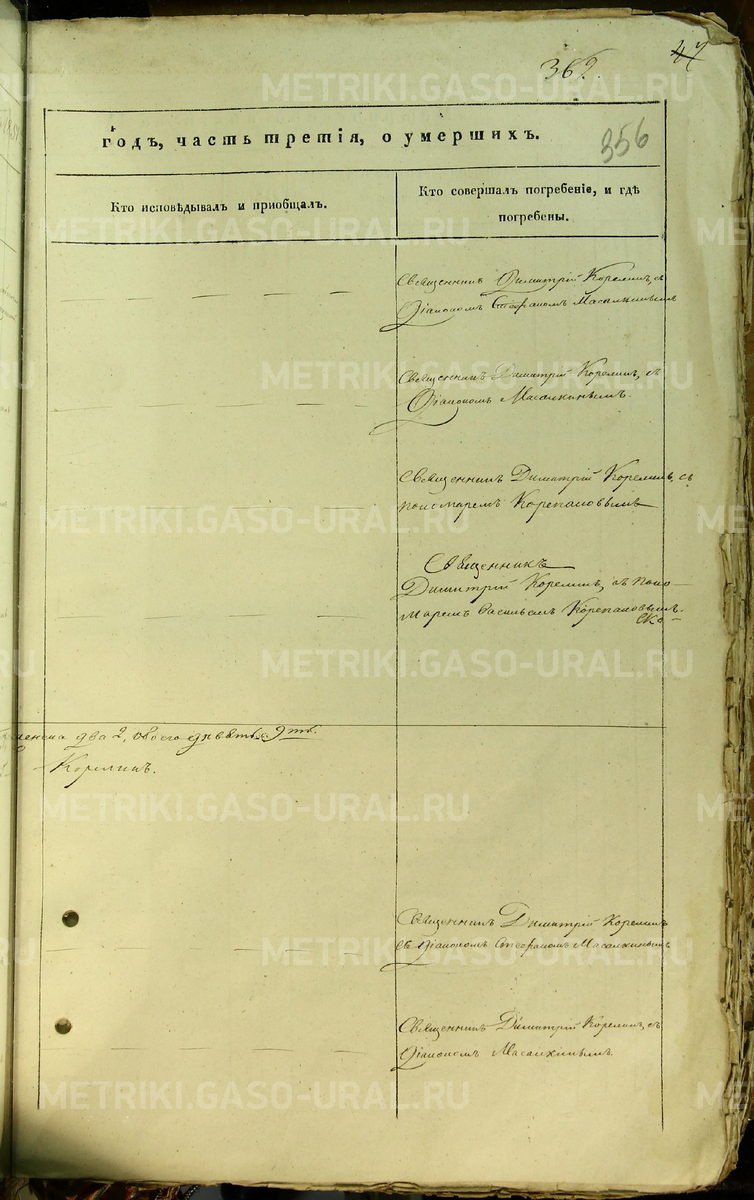 47
362.
356
годъ, часть третія, о умершихъ.
Кто исповѣдывалъ и приобщалъ.
Кто совершалъ погребеніе, и гдѣ
погребены.
Священникъ Димитрій Корелинъ, съ
Діакономъ Стефаномъ Масалкинымъ
Священникъ Димитрій Корелинъ, съ
Діакономъ Масалкинымъ.
Священникъ Димитрій Корелинъ, съ
пономаремъ Корепановымъ
Священникъ
Димитрій Корелинъ, съ поно-
маремъ Васильемъ Корепановымъ.
два 2, обоего девять 9ть.
Корелинъ.
Священникъ Димитрій Корелинъ
съ Діакономъ Стефаномъ Масалкинымъ
Священникъ Димитрій Корелинъ, съ
Діакономъ Масалкинымъ.
METRIKI.GASO-URAL.RU